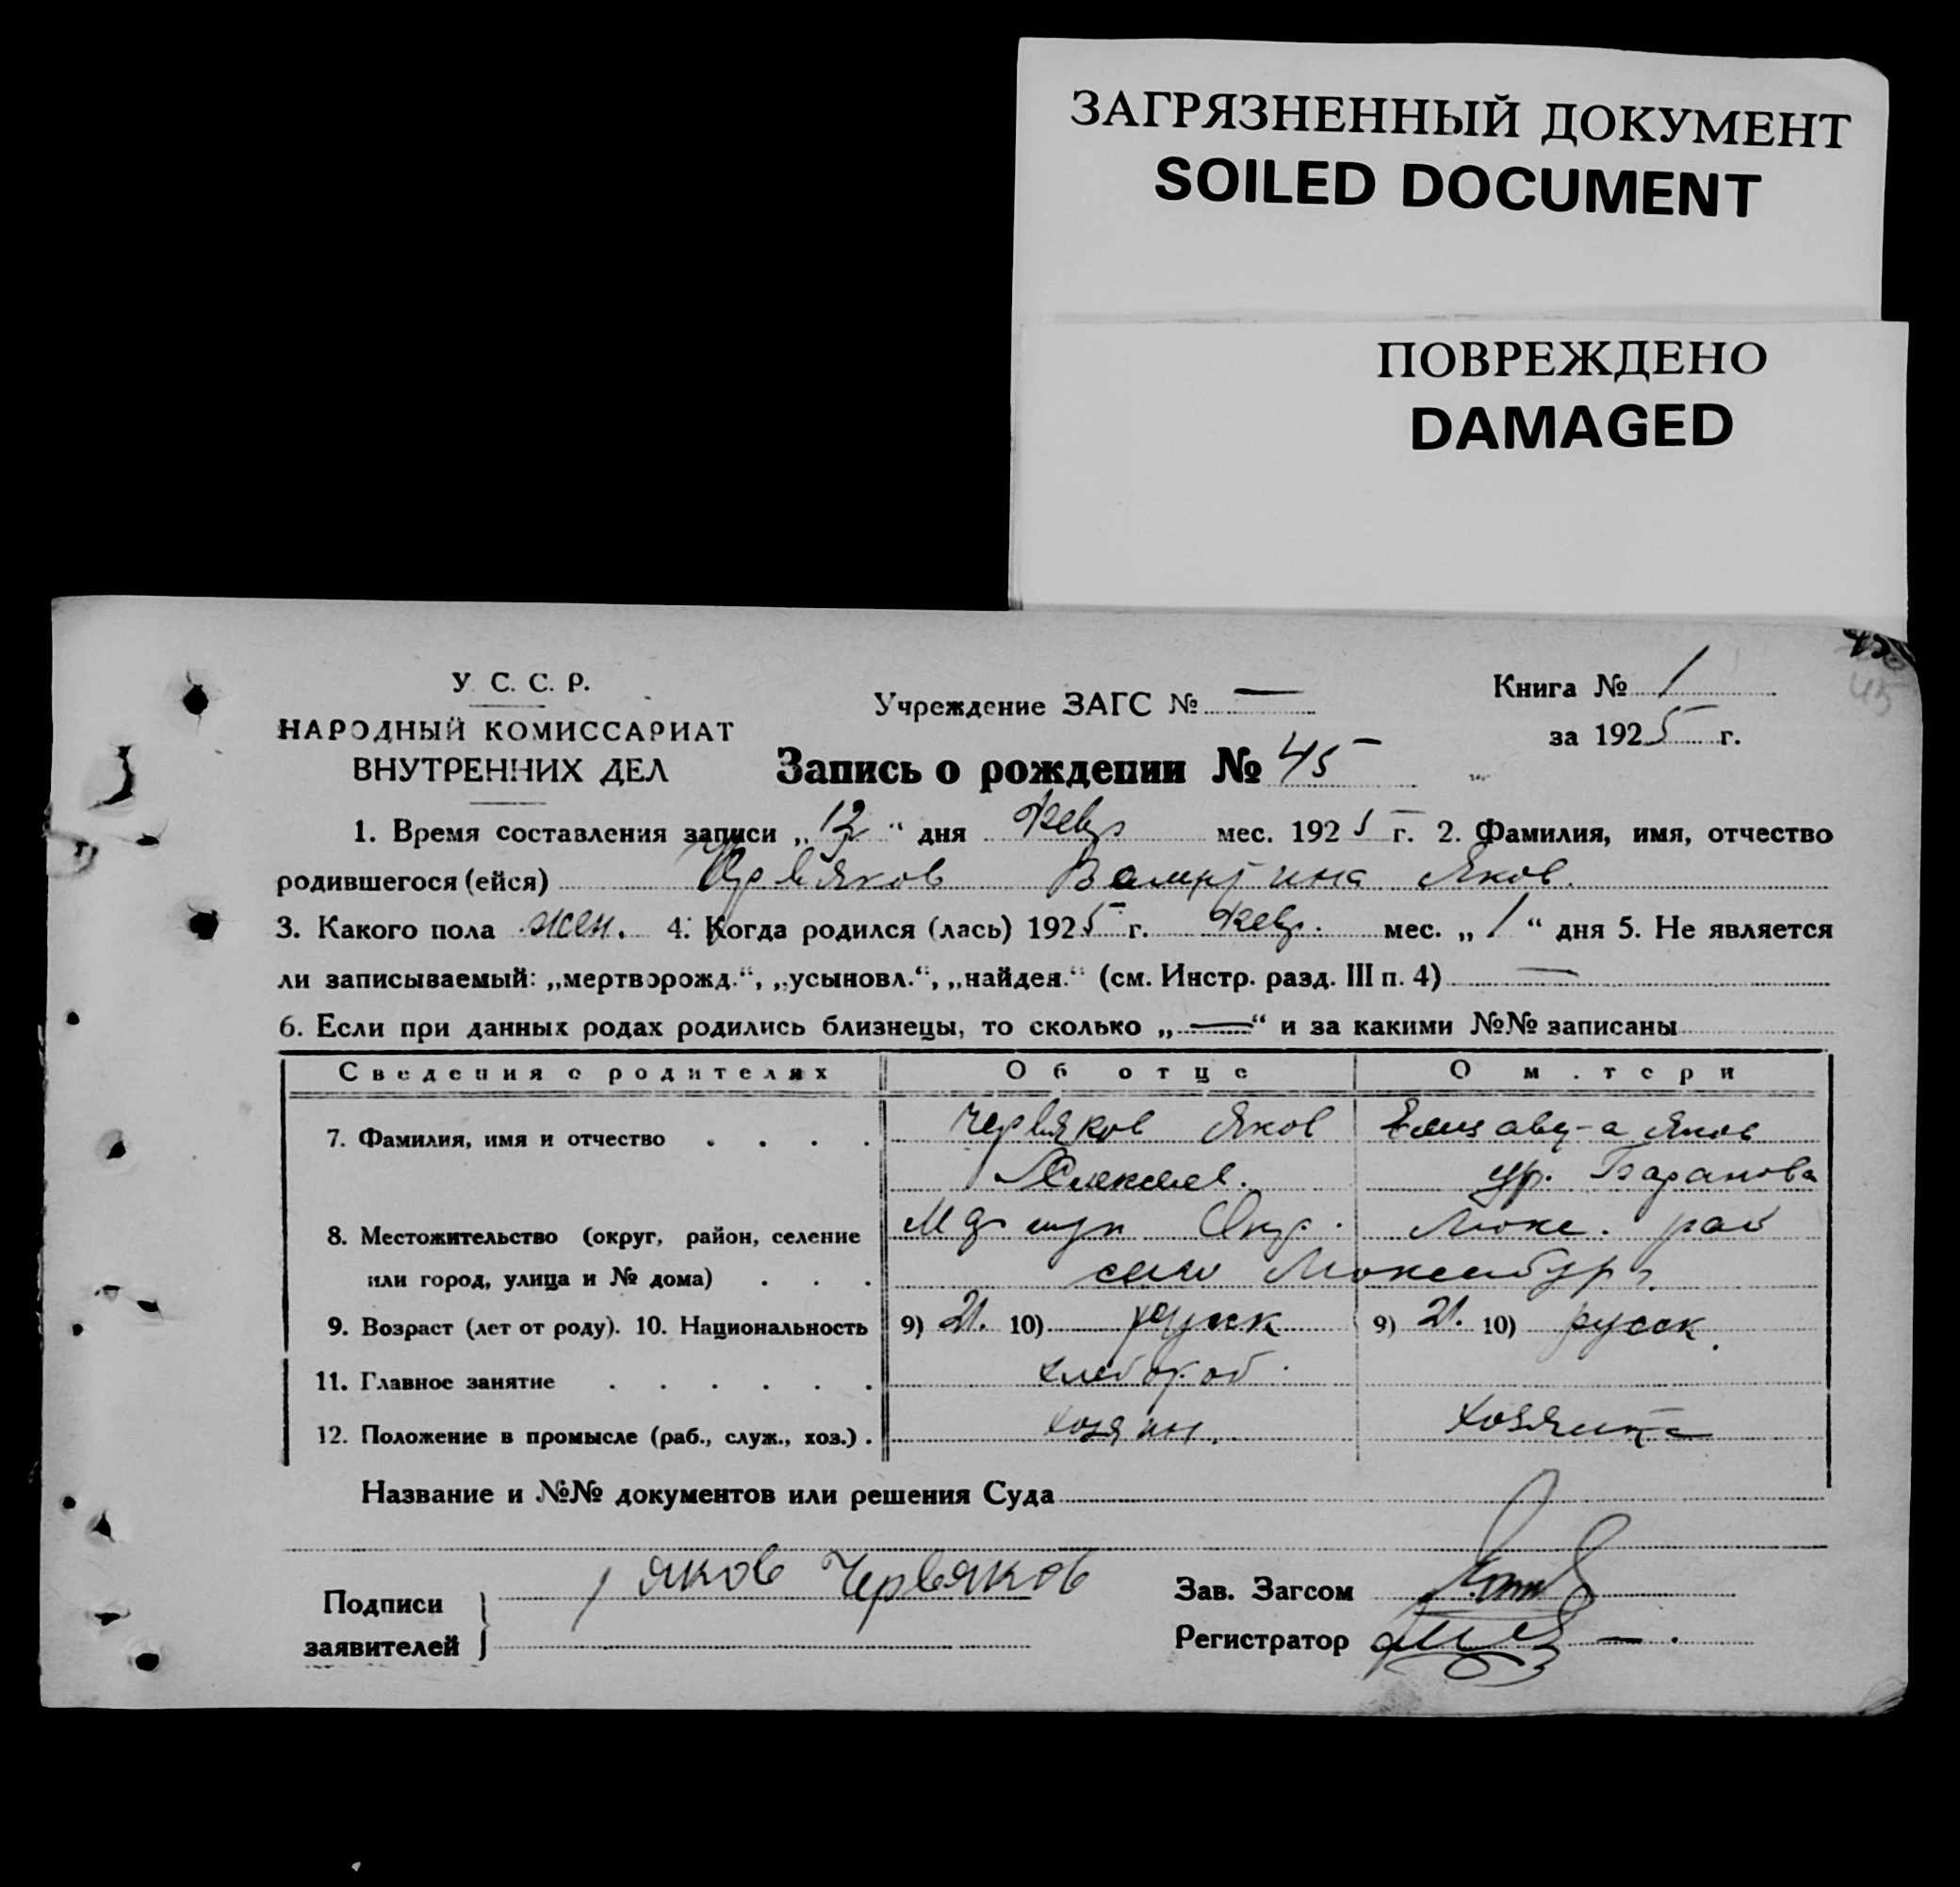 ЗАГРЯЗНЕННЫЙ ДОКУМЕНТ
SOILED DOCUMENT
ПОВРЕЖДЕНО
DAMAGED
45
45
У. С. С. Р.
НАРОДНЫЙ КОМИССАРИАТ
ВНУТРЕННИХ ДЕЛ
Учреждение ЗАГС № —
Книга № 1
за 1925 г.
Запись о рождении № 45
1. Время составления записи „12“ дня Февр мес. 1925 г. 2. Фамилия, имя, отчество
родившегося (ейся) Червяков Валентина Яков.
3. Какого пола жен. 4. Когда родился (лась) 1925 г. Февр. мес. „1“ дня 5. Не является
ли записываемый: „мертворожд.“, „усыновл.“, „найден.“ (см. Инстр. разд. III п. 4) —
6. Если при данных родах родились близнецы, то сколько „—“ и за какими №№ записаны
Сведения о родителях Об отце О матери
7. Фамилия, имя и отчество . . . . Червяков Яков Елизавет-а Яков
Алексеев. ур. Баранова
8. Местожительство (округ, район, селение Окр. Люкс. рай
или город, улица и № дома) . . . село Люксембург
9. Возраст (лет от роду). 10. Национальность 9) 21. 10) русск 9) 21. 10) русск.
11. Главное занятие . . . . . . хлебороб.
12. Положение в промысле (раб., служ., хоз.) . хозяин. хозяйка
Название и №№ документов или решения Суда
Подписи
заявителей
Яков Червяков
Зав. Загсом
Регистратор